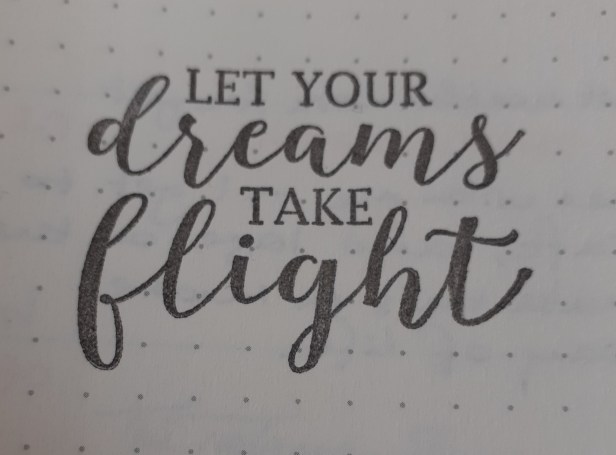 LET YOUR
dreams
TAKE
flight